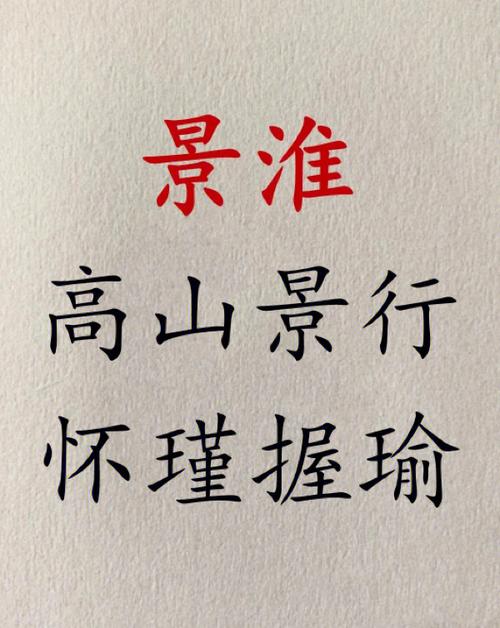 景淮
高山景行
怀瑾握瑜